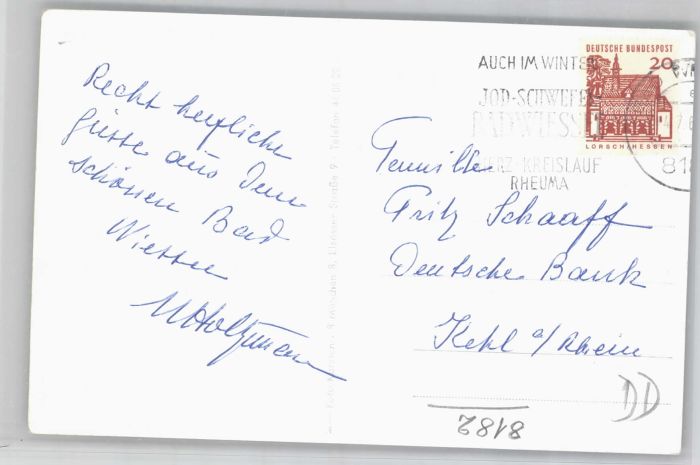 Recht herzliche
Grüsse aus dem
schönen Bad
Wiessee
AUCH IM WINTER
JOD-SCHWEFEL
BAD WIESSEE
HERZ-KREISLAUF
RHEUMA
818
DEUTSCHE BUNDESPOST
20
LORSCH/HESSEN
Familie
Fritz Schaaff
Deutsche Bank
Kehl a/Rhein
8182